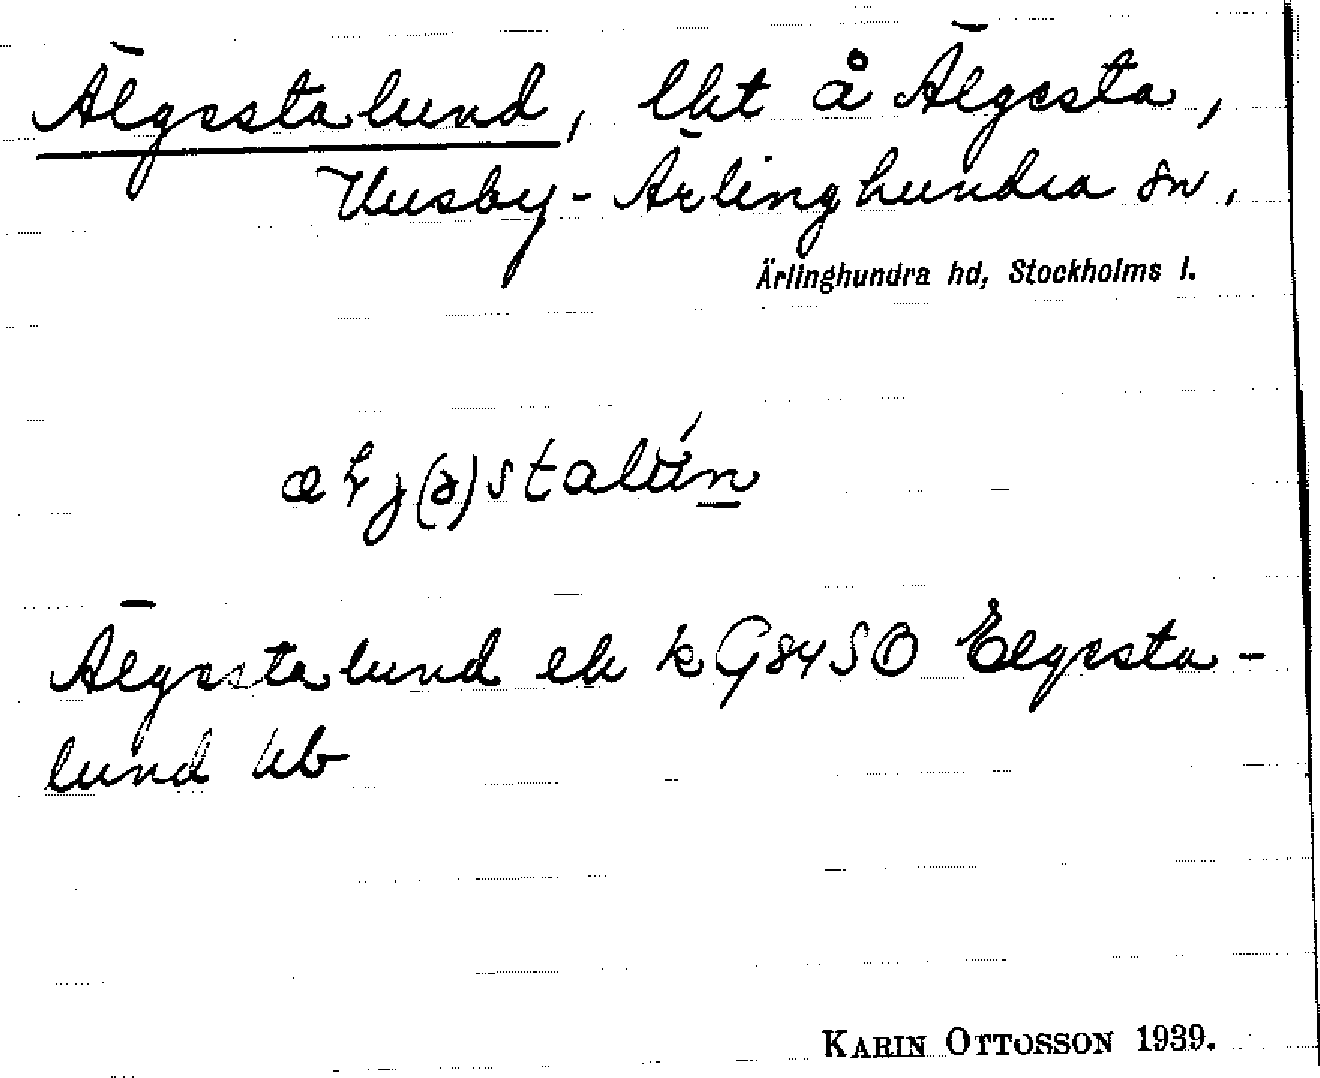 Älgestalund, lht å Älgesta,
Husby-Ärlinghundra sn,
Ärlinghundra hd, Stockholms l.
Älgestalund ek k G84SO Elgesta-
lund hb
KARIN OTTOSSON 1939.